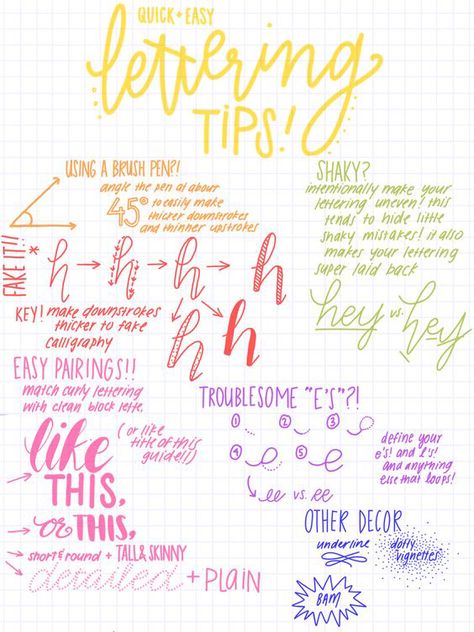 QUICK + EASY
lettering
TIPS!
USING A BRUSH PEN?!
angle the pen at about
45° to easily make
thicker downstrokes
and thinner upstrokes
SHAKY?
intentionally make your
lettering uneven! this
tends to hide little
shaky mistakes! it also
makes your lettering
super laid back
hey vs. hey
FAKE IT!! *
h → h → h → h
h h
KEY! make downstrokes
thicker to fake
calligraphy
EASY PAIRINGS!!
match curly lettering
with clean block lette,
(or like
title of this
guide!!)
like
THIS,
or THIS,
short & round + TALL & SKINNY
detailed + PLAIN
TROUBLESOME "E'S"?!
1 2 3
4 5
ee vs. ee
define your
e's! and l's!
and anything
else that loops!
OTHER DECOR
underline
dotty
vignettes
BAM